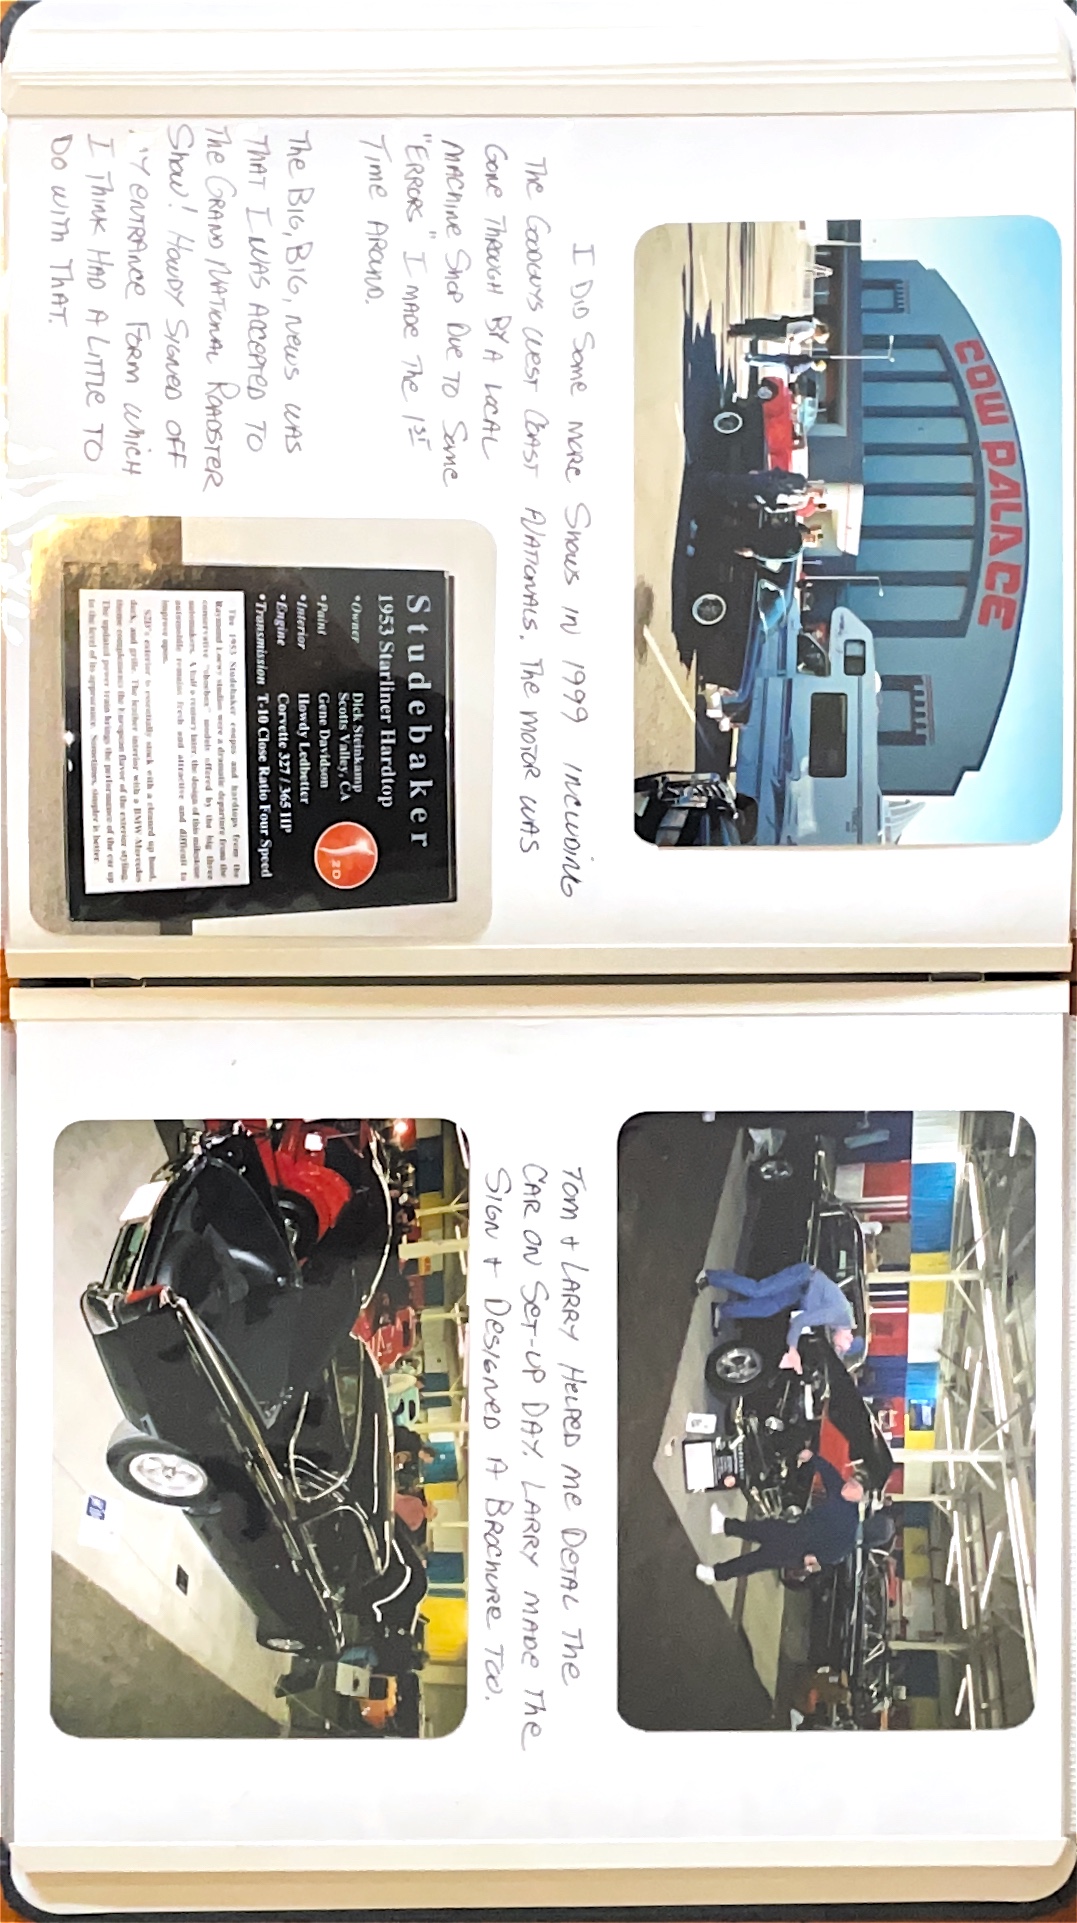 COW PALACE
I DID Some more Shows in 1999 INCLUDING
The GOODGUYS WEST COAST NATIONALS. The MOTOR WAS
Gone THROUGH BY A LOCAL
MACHINE SHOP DUE TO Some
"ERRORS" I MADE THE 1ST
Time AROUND.
The BIG, BIG, NEWS WAS
THAT I WAS ACCEPTED TO
The GRAND NATIONAL ROADSTER
Show! HOWDY SIGNED OFF
ENTRANCE FORM WHICH
I THINK HAD A LITTLE TO
DO WITH THAT.
Studebaker
1953 Starliner Hardtop
•Owner Dick Steinkamp
Scotts Valley, CA
•Paint Gene Davidson
•Interior Howdy Ledbetter
•Engine Corvette 327 / 365 HP
•Transmission T-10 Close Ratio Four Speed
2D
The 1953 Studebaker coupes and hardtops from the
Raymond Loewy studios were a dramatic departure from the
conservative "shoebox" models offered by the big three
automakers. A half a century later, the design of this milestone
automobile remains fresh and attractive and difficult to
improve upon.
S2D's exterior is essentially stock with a cleaned up hood,
deck, and grille. The leather interior with a BMW-Mercedes
theme complements the European flavor of the exterior styling.
The updated power train brings the performance of the car up
to the level of its appearance. Sometimes, simpler is better.
Tom + LARRY HELPED ME DETAL THE
CAR ON SET-UP DAY. LARRY MADE The
SIGN + DESIGNED A BROCHURE TOO.